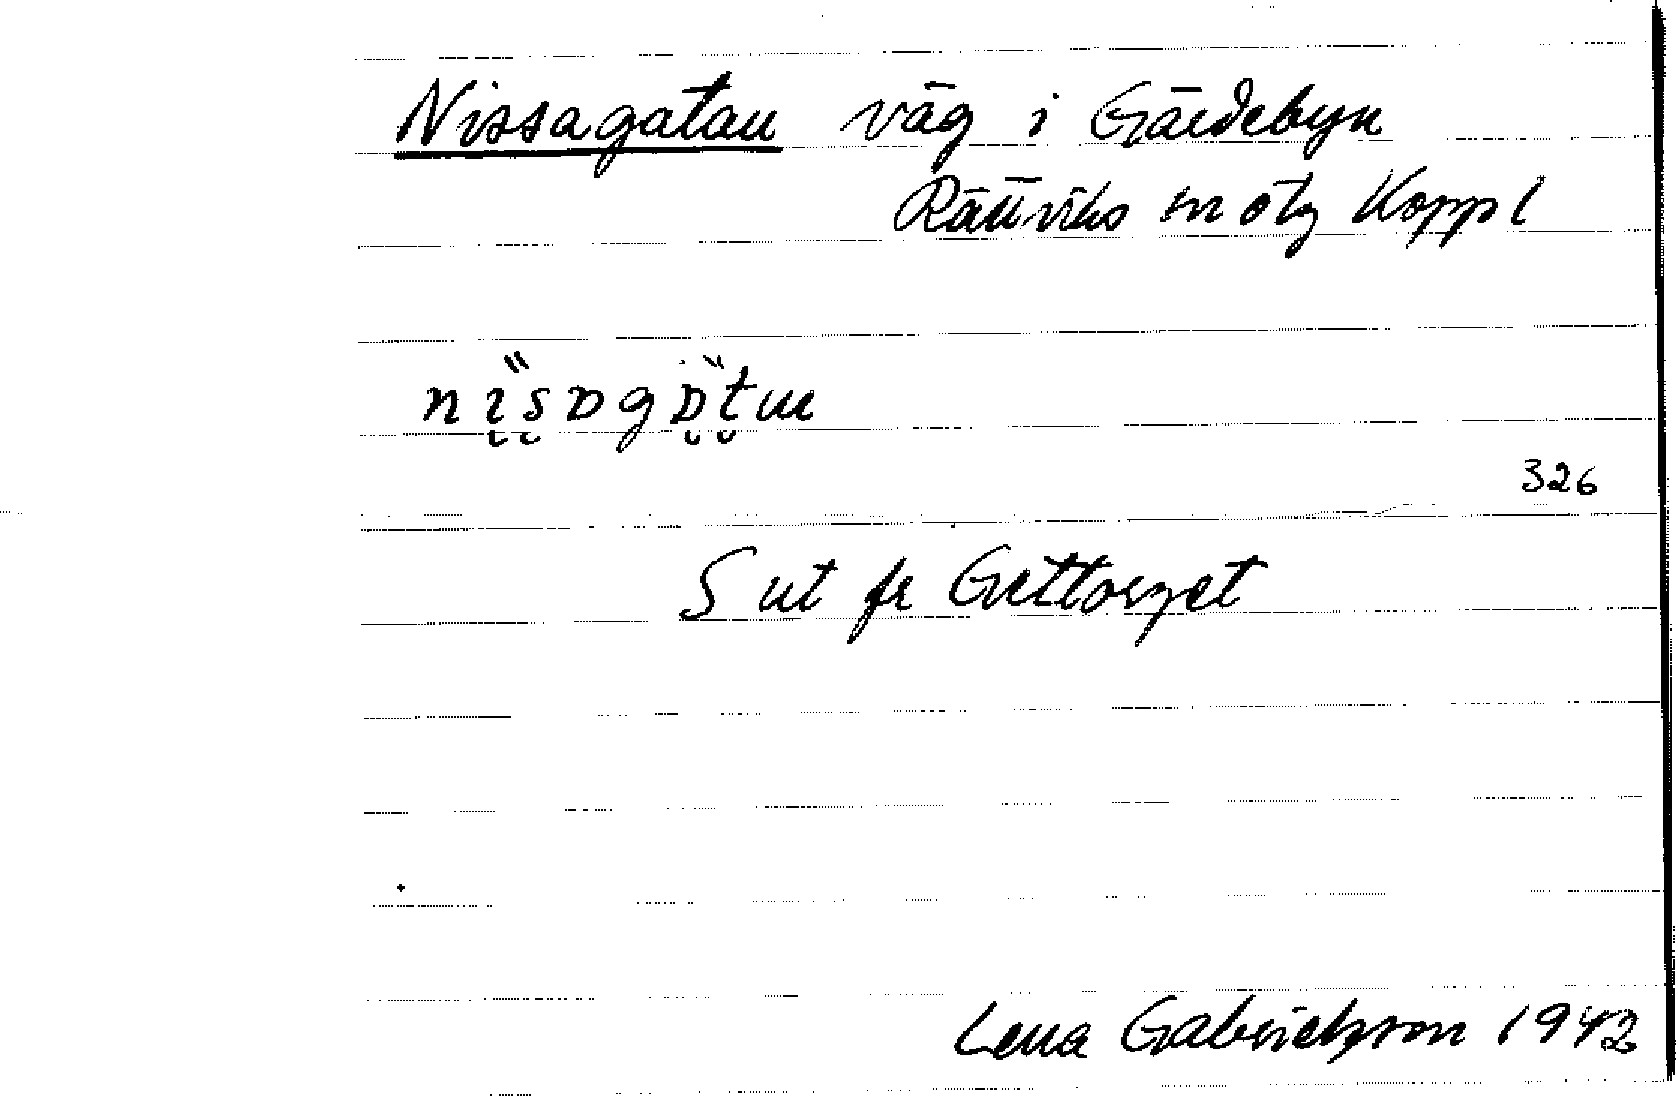 Nissagatan väg i Gärdebyn
Rättviks sn o tg Koppl
326
S ut fr Gettorget
Lena Gabrielsson 1942